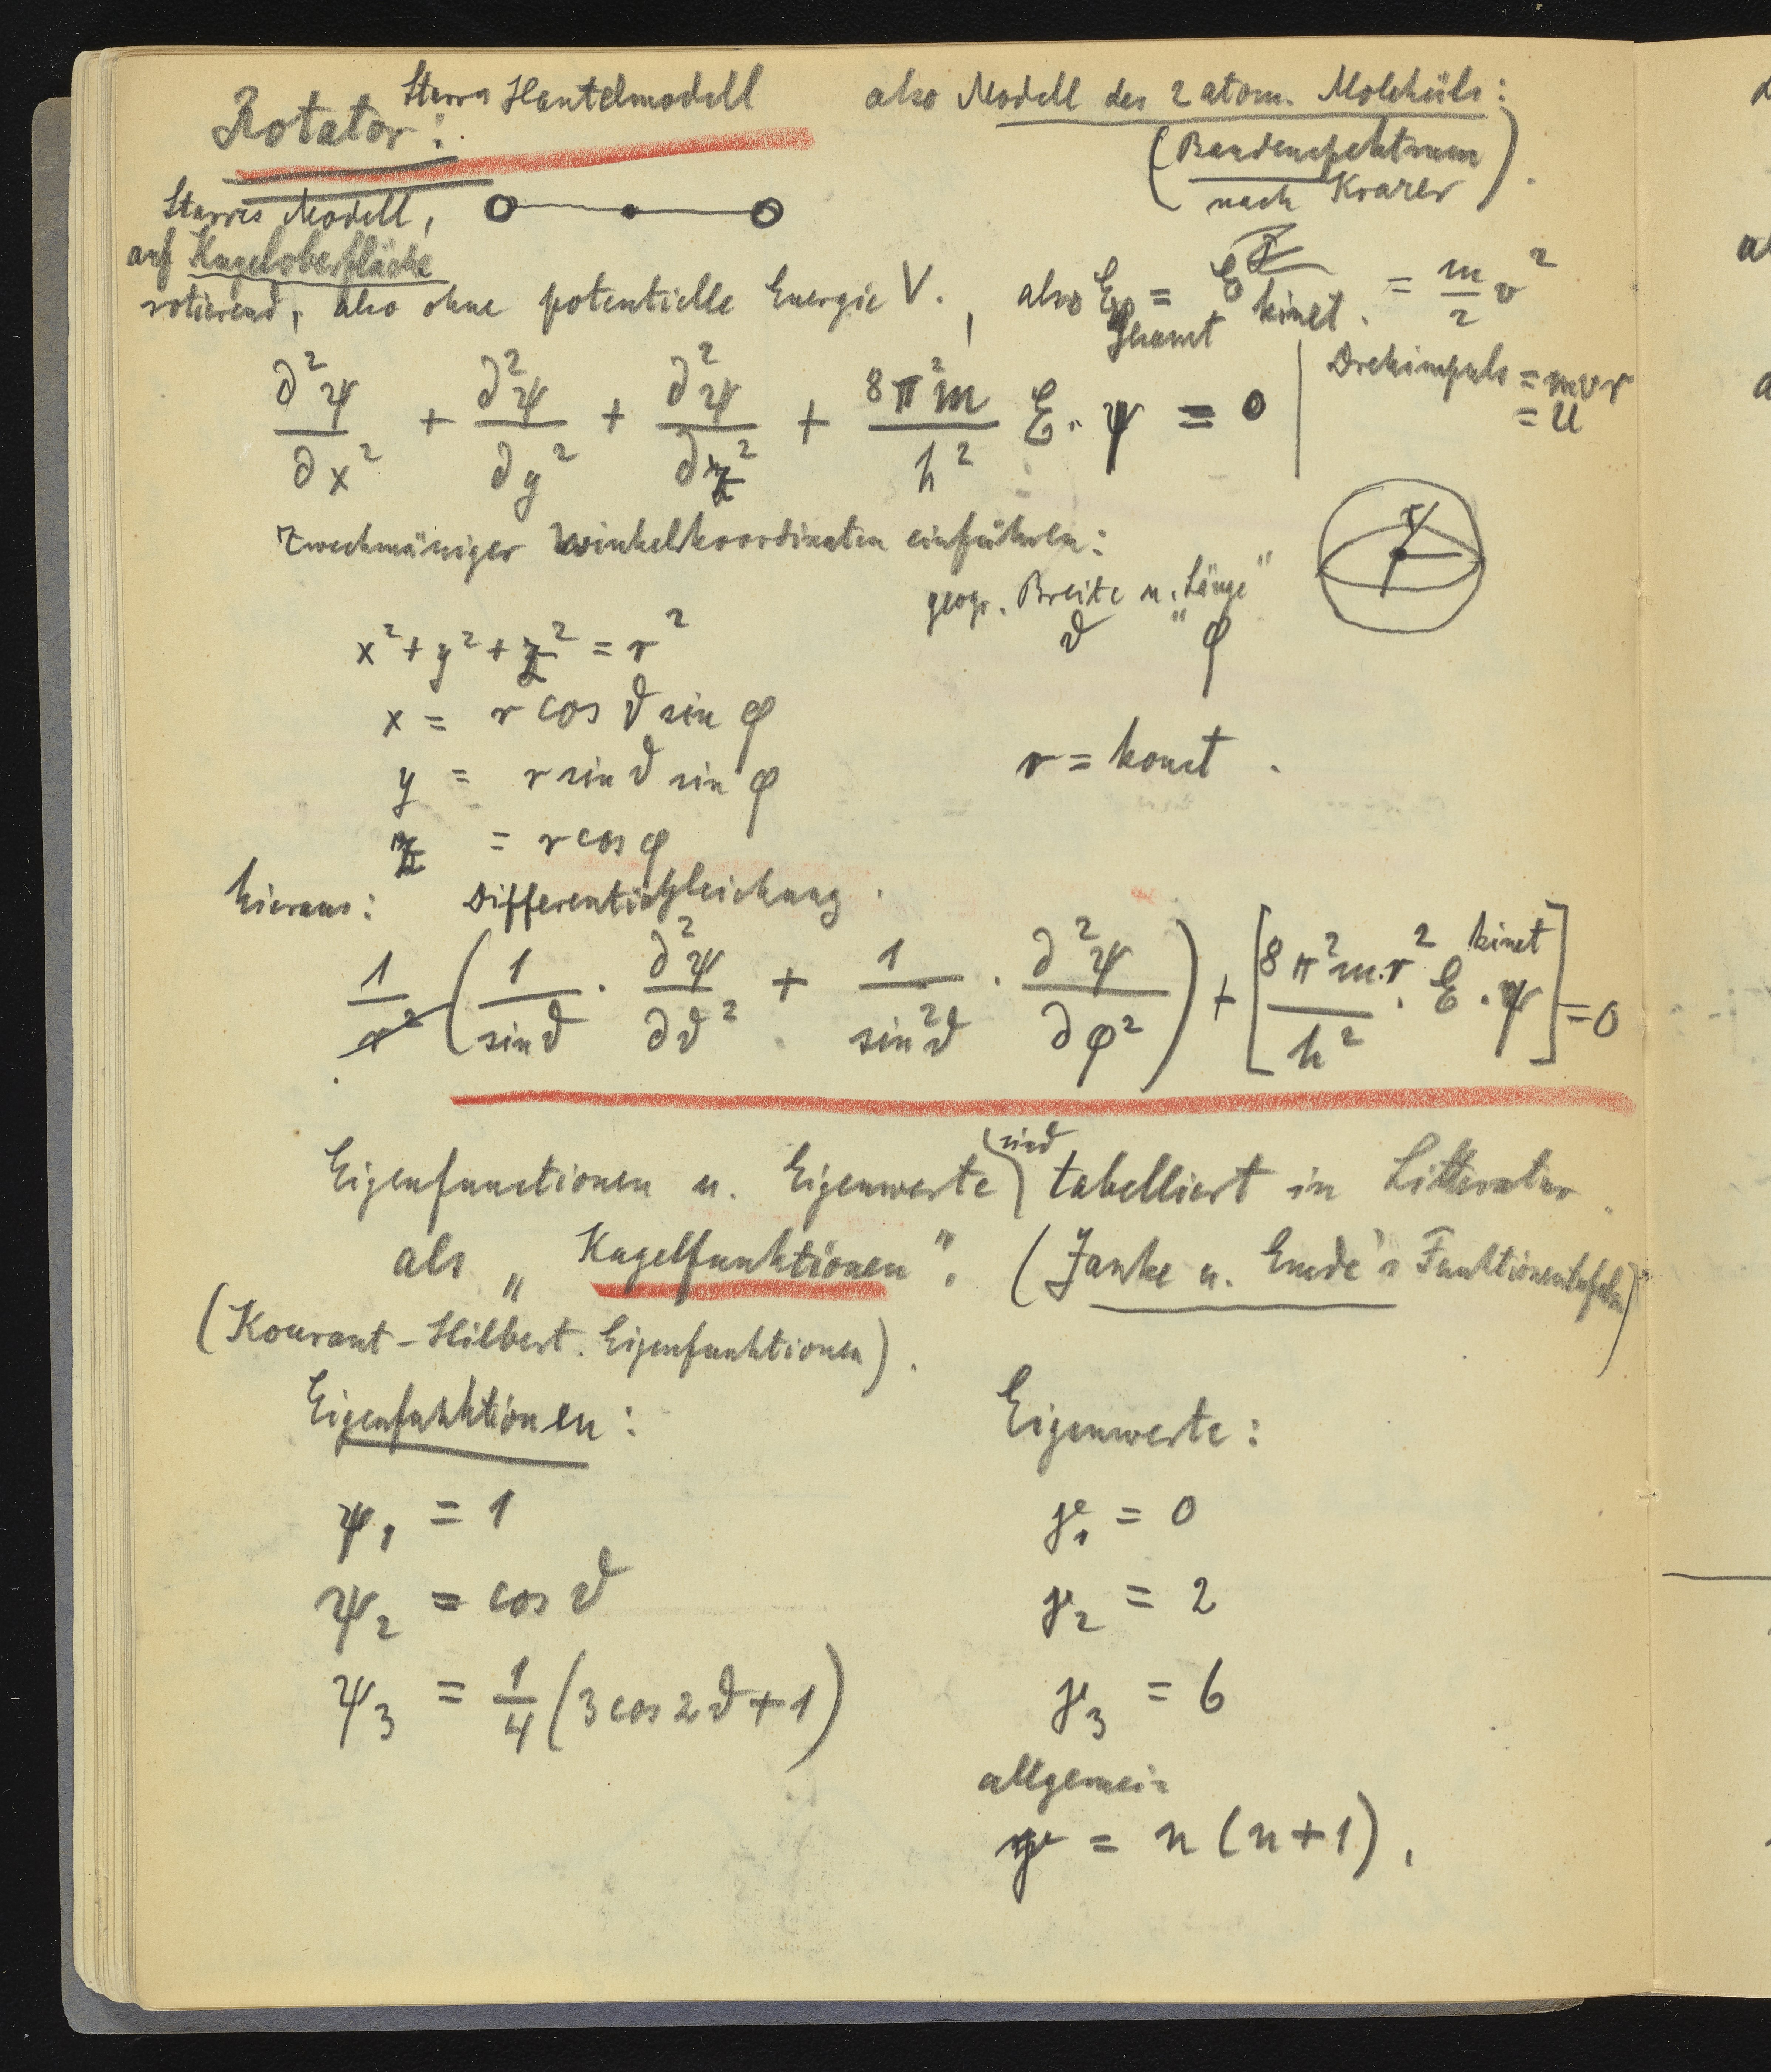 Rotator: Starres Hantelmodell also Modell des 2 atom. Moleküls:
(Bandenspektrum
nach Krazer).
Starres Modell,
auf Kugeloberfläche
rotierend, also ohne potentielle Energie V. , also E_gesamt = E_kinet. = m/2 v²
∂²ψ/∂x² + ∂²ψ/∂y² + ∂²ψ/∂z² + 8π²m/h² E. ψ = 0 | Drehimpuls = mvr
= U
Zweckmäsiger Winkelkoordinaten einführen:
geogr. Breite u. „Länge"
ϑ φ
r
x² + y² + z² = r²
x = r cos ϑ sin φ
y = r sin ϑ sin φ
r = konst.
z = r cos φ
hieraus: Differentialgleichung.
1/r² (1/sin ϑ · ∂²ψ/∂ϑ² + 1/sin²ϑ · ∂²ψ/∂φ²) + [8π²m.r²/h² · E kinet · ψ] = 0
Eigenfunctionen u. Eigenwerte sind tabelliert in Litteratur.
als „Kugelfunktionen". (Janke u. Emde's Funktionentafeln)
(Kourant-Hilbert. Eigenfunktionen).
Eigenfunktionen: Eigenwerte:
ψ₁ = 1 γ₁ = 0
ψ₂ = cos ϑ γ₂ = 2
ψ₃ = 1/4 (3 cos 2ϑ + 1) γ₃ = 6
allgemein
γ = n (n + 1).